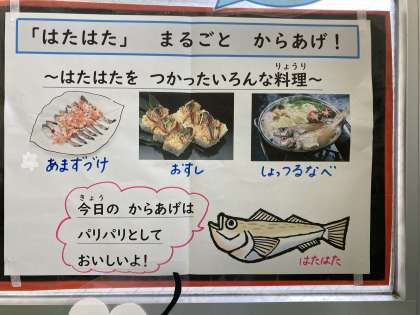 「はたはた」 まるごと からあげ!
～はたはたを つかったいろんな料理～
りょうり
あまずづけ
おすし
しょっつるなべ
きょう
今日の からあげは
パリパリとして
おいしいよ!
はたはた